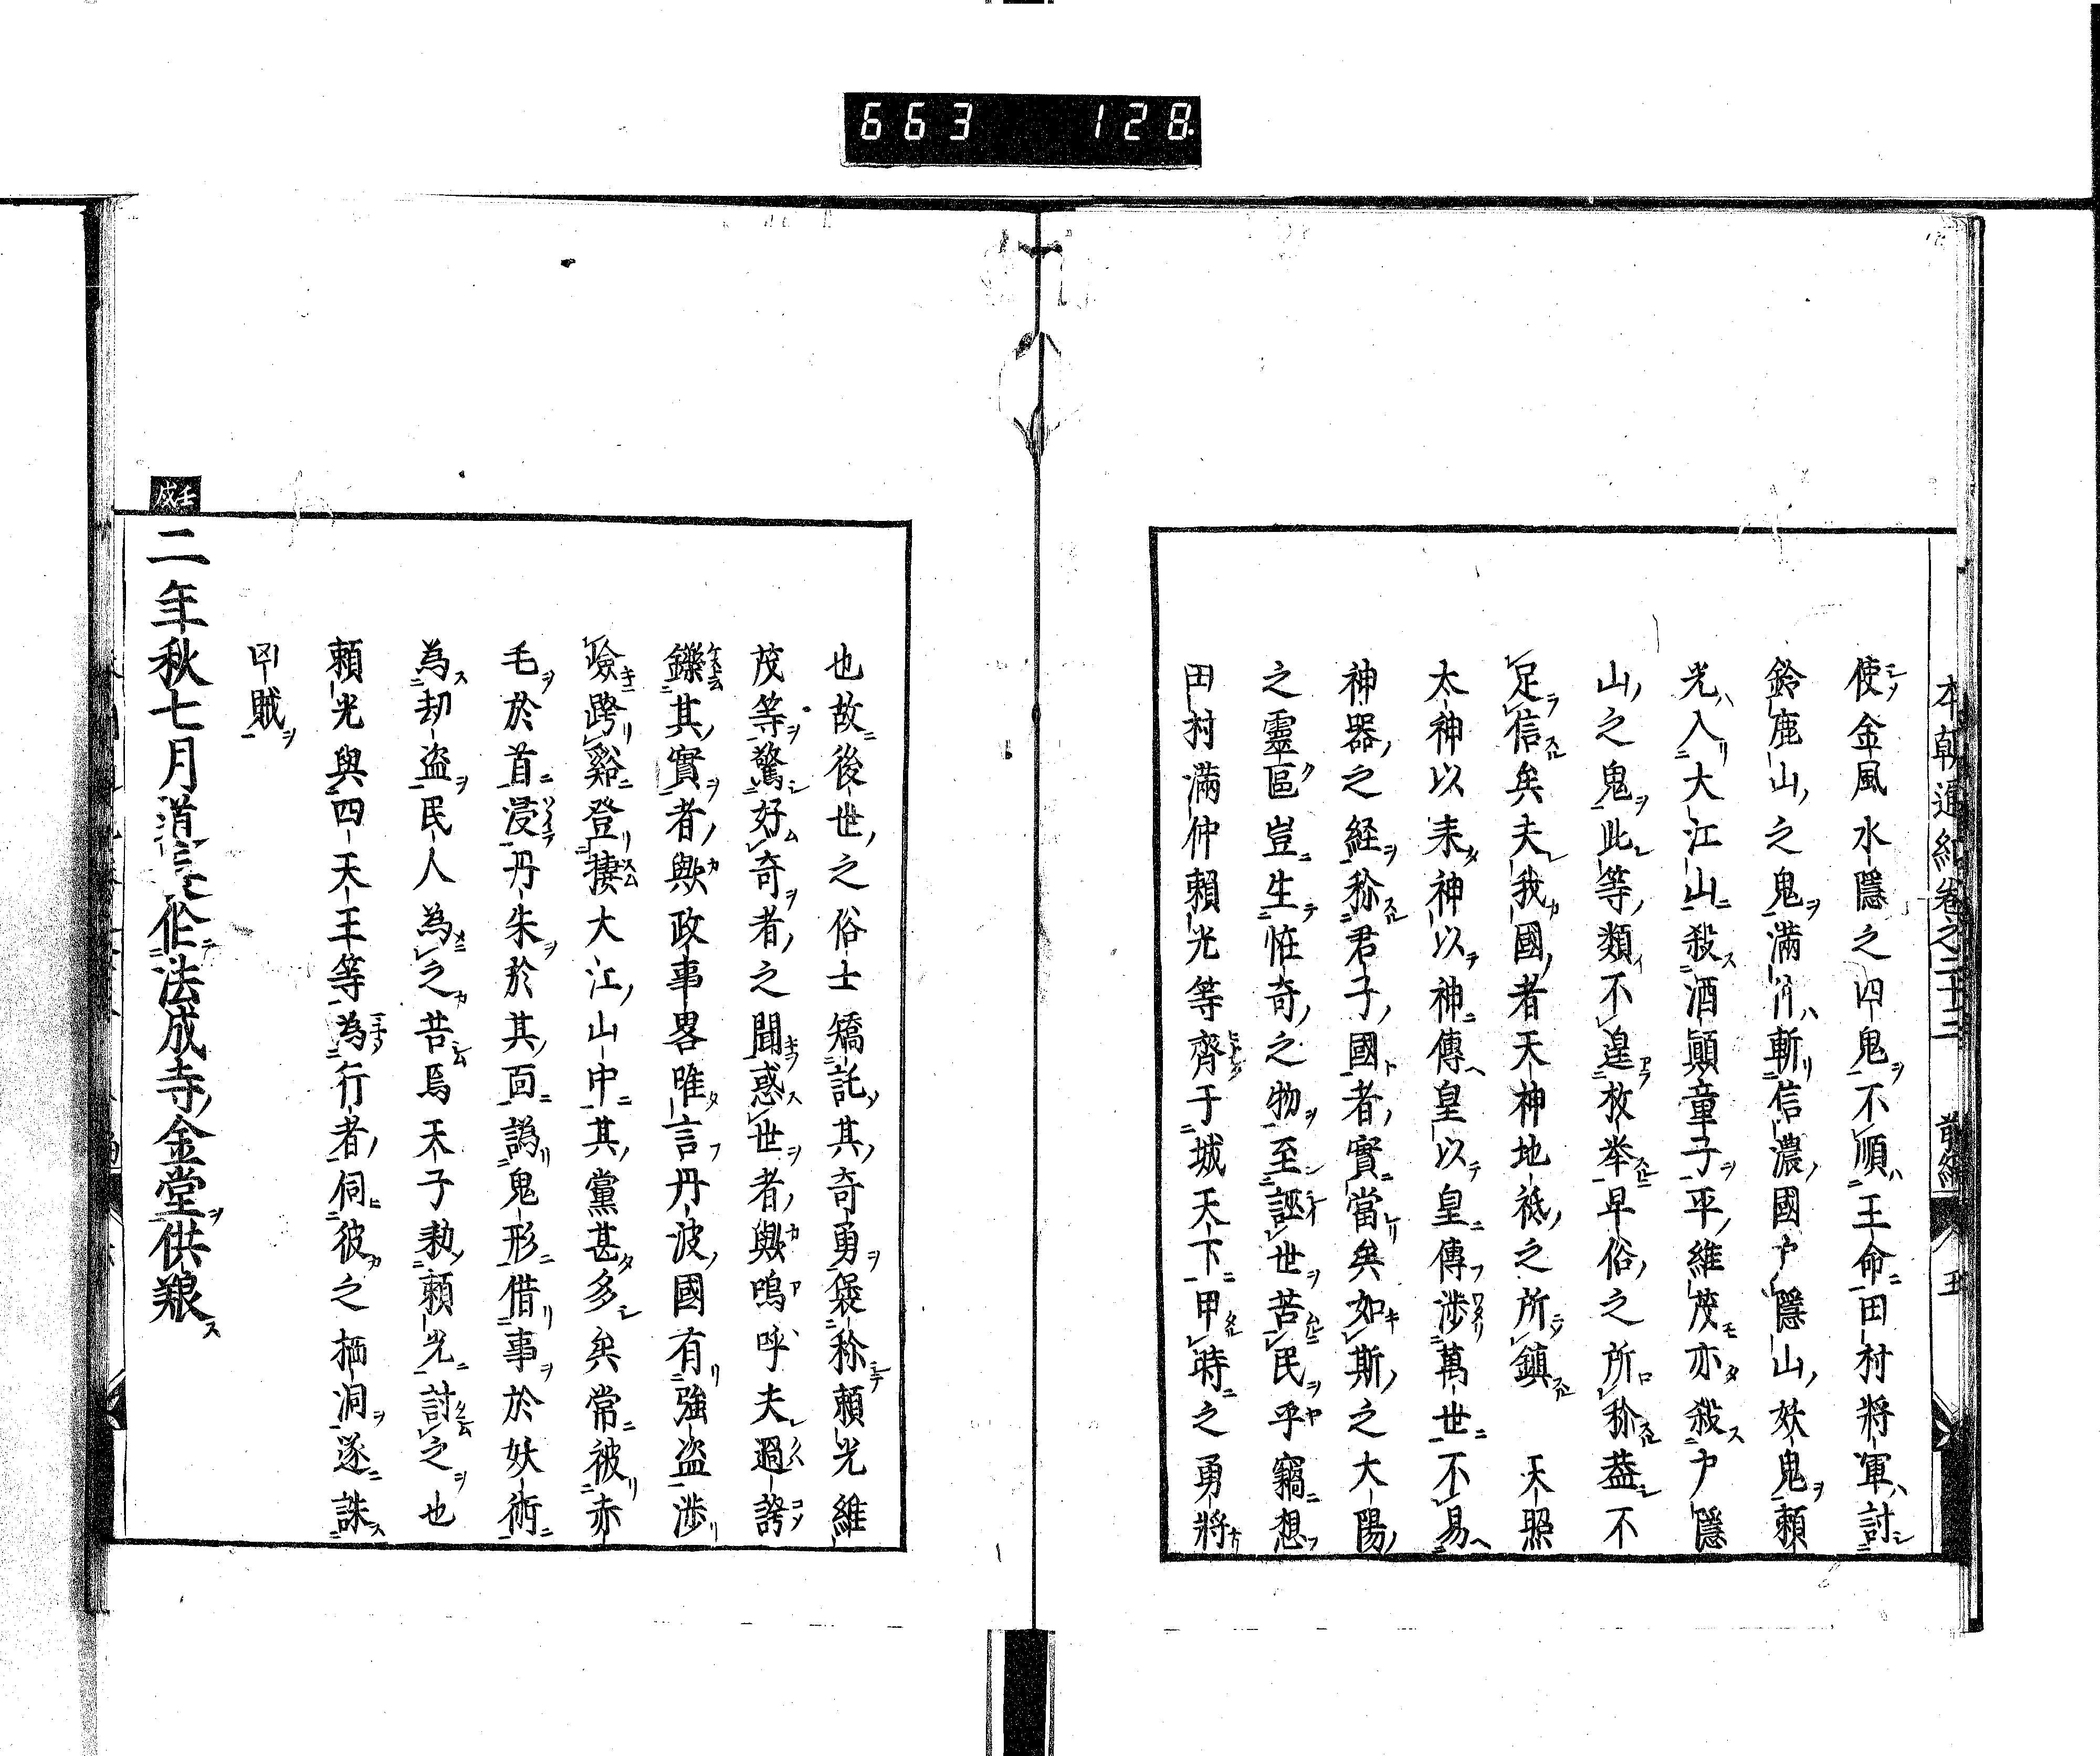 663 128
本朝通紀卷之二十三 前編 王
使金風水隱之四鬼不順王命田村將軍討
鈴鹿山之鬼滿仲斬信濃國戸隱山妖鬼頼
光入大江山殺酒顚童子平維茂亦殺戸隱
山之鬼此等類不遑枚举早俗之所称蓋不
足信矣夫我國者天神地祗之所鎮 天照
太神以来神以神傳皇以皇傳渉萬世不易
神器之経称君子國者實當矣如斯之大陽
之靈區豈生恠奇之物至誣世苦民乎竊想
田村滿仲頼光等齊于城天下甲時之勇將
也故後世之俗士矯託其奇勇褒称頼光維
茂等驚好奇者之聞惑世者歟嗚呼夫過誇
鑠其實者歟政事畧唯言丹波國有強盗渉
嶮跨谿登棲大江山中其黨甚多矣常被赤
毛於首浸丹朱於其面譌鬼形借事於妖術
為劫盗民人為之苦焉天子勅頼光討之也
頼光與四天王等為行者伺彼之栖洞遂誅
㓙賊
壬戌
二年秋七月道長作法成寺金堂供粮